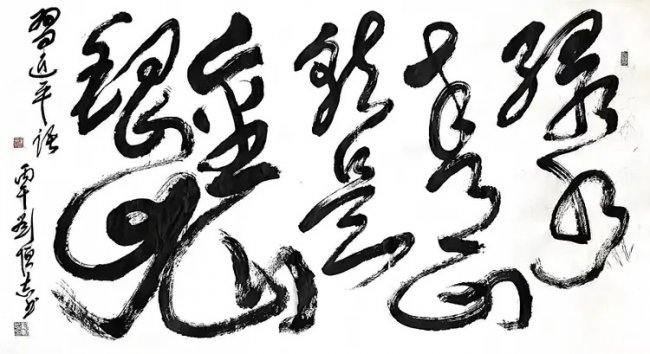 绿水
青山
就是
金山
银山
習近平语
丙午劉恒书